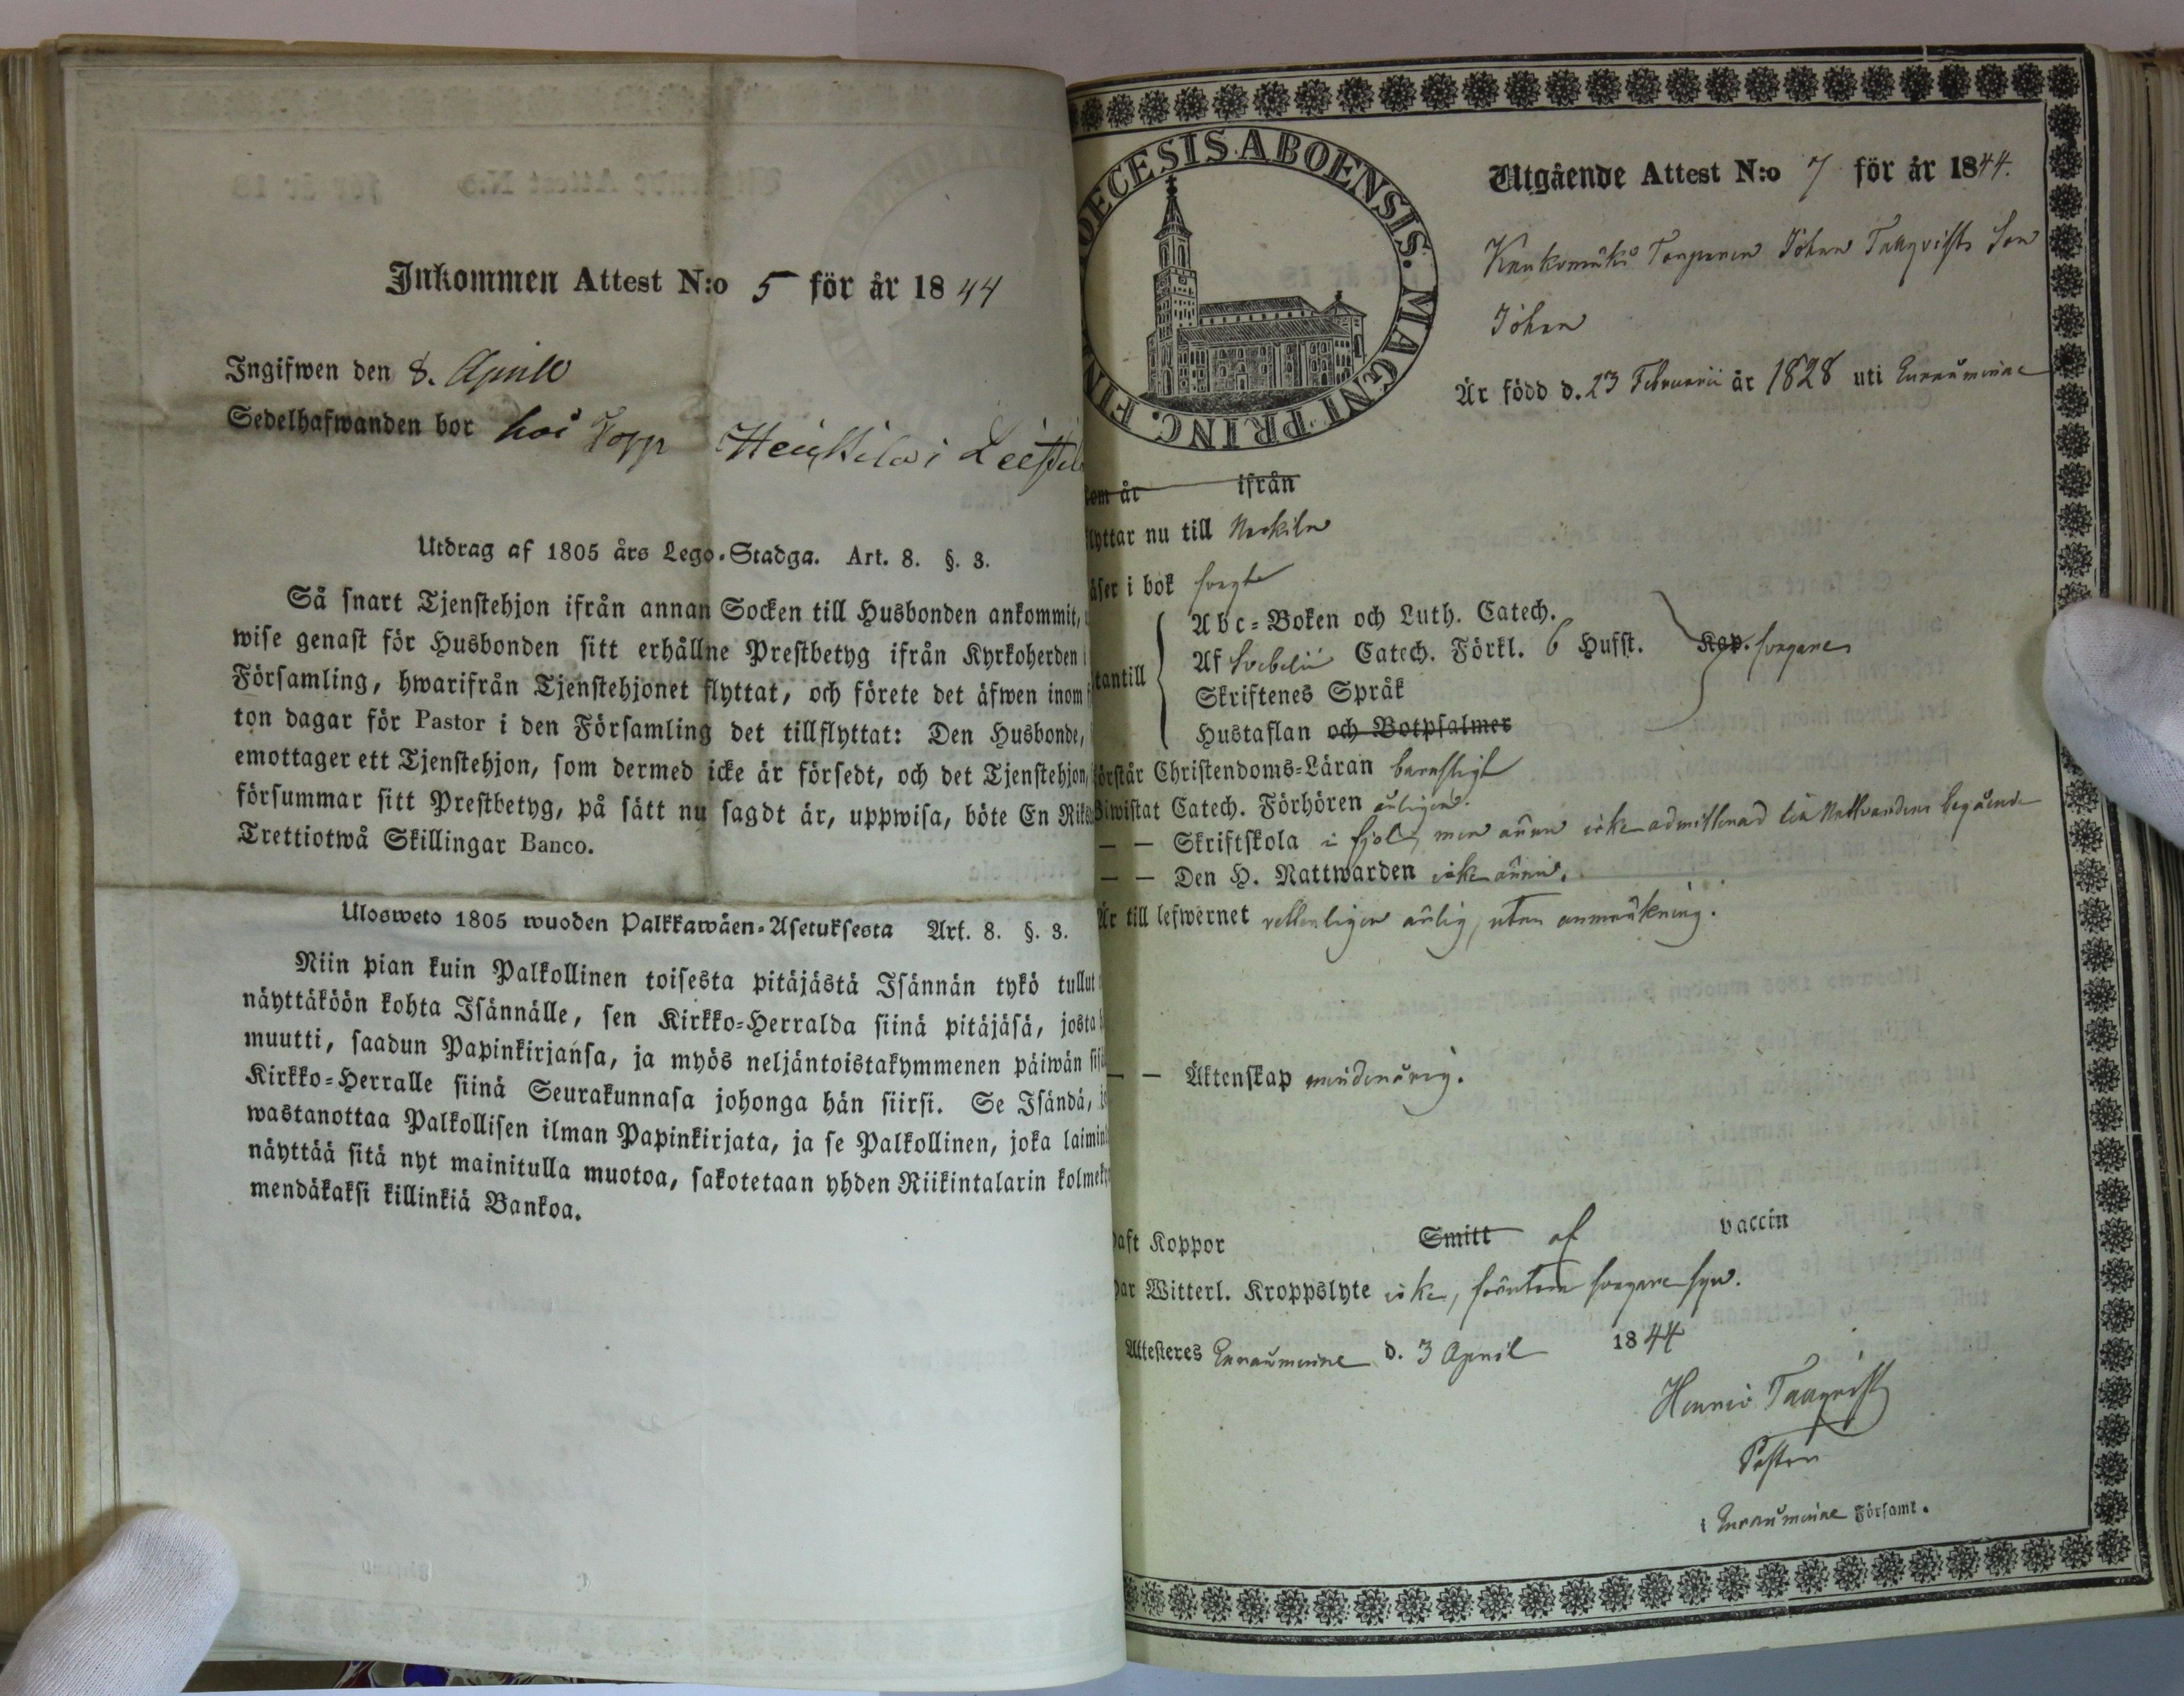 Inkommen Attest N:o 5 för år 1844
Ingifwen den 8. Aprill
Sedelhafwanden bor hos Torp Heikkila i
Utdrag af 1805 års Lego-Stadga. Art. 8. §. 3.
Så snart Tjenstehjon ifrån annan Socken till Husbonden ankommit,
wise genast för Husbonden sitt erhållne Prestbetyg ifrån Kyrkoherden i
Församling, hwarifrån Tjenstehjonet flyttat, och förete det äfwen inom
ton dagar för Pastor i den Församling det tillflyttat: Den Husbonde,
emottager ett Tjenstehjon, som dermed icke är försedt, och det Tjenstehjon,
försummar sitt Prestbetyg, på sätt nu sagdt är, uppwisa, böte En Riks
Trettiotwå Skillingar Banco.
Ulosweto 1805 wuoden Palkkawäen-Asetuksesta Art. 8. §. 3.
Niin pian kuin Palkollinen toisesta pitäjästä Isännän tykö tullut
näyttäköön kohta Isännälle, sen Kirkko-Herralda siinä pitäjäsä, josta
muutti, saadun Papinkirjansa, ja myös neljäntoistakymmenen päiwän sis
Kirkko-Herralle siinä Seurakunnasa johonga hän siirsi. Se Isändä,
wastanottaa Palkollisen ilman Papinkirjata, ja se Palkollinen, joka laimin
näyttää sitä nyt mainitulla muotoa, sakotetaan yhden Riikintalarin kolmek
mendäkaksi killinkiä Bankoa.
OECESIS ABOENSIS. MAGNI PRINC. FIN
Utgående Attest N:o 7 för år 1844.
Torparen Johan Tallqvists Son
Johan
Är född d. 23 Februarii år 1828 uti Euraåminne
om år ifrån
lyttar nu till Nakkila
äser i bok svagt
tantill
Abc-Boken och Luth. Catech.
Af Svebelii Catech. Förkl. 6 Hufst. Kap. svagare
Skriftenes Språk
Hustaflan och Botpsalmer
örstår Christendoms-Läran barnsligt
Biwistat Catech. Förhören årligen.
— — Skriftskola i fjol, men ännu icke admitterad till Nattvardens begående
— — Den H. Nattwarden icke ännu.
Är till lefwernet veterligen ärlig, utan anmärkning.
— — Äktenskap minderårig.
haft Koppor Smitt af vaccin
har Witterl. Kroppslyte icke, förutom svagare syn.
Attesteres Euraåminne d. 3 April 1844
Henric Tallqvist
Pastor
i Euraåminne Församl.